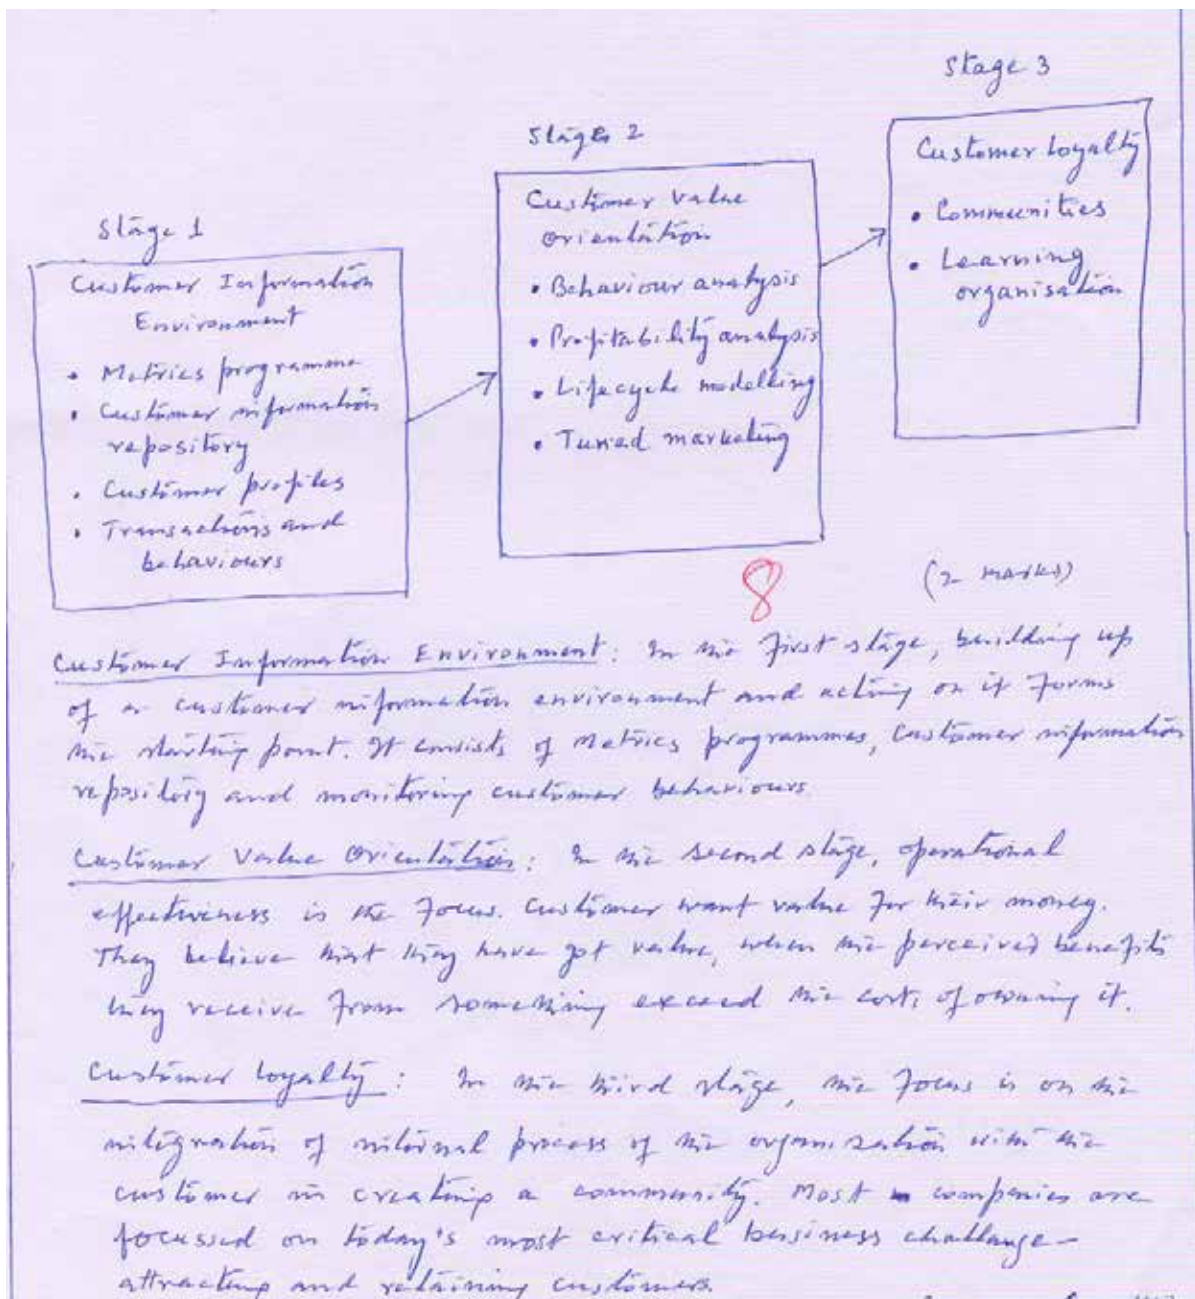 Stage 1
Customer Information
Environment
• Metrics programme
• Customer information
repository
• Customer profiles
• Transactions and
behaviours
Stages 2
Customer Value
orientation
• Behaviour analysis
• Profitability analysis
• Lifecycle modelling
• Tuned marketing
Stage 3
Customer Loyalty
• Communities
• Learning
organisation
8
(2 marks)
Customer Information Environment: In the first stage, building up
of a customer information environment and acting on it forms
the starting point. It consists of Metrics programmes, Customer information
repository and monitoring customer behaviours.
Customer Value Orientation: In the second stage, operational
effectiveness is the focus. Customer want value for their money.
They believe that they have got value, when the perceived benefits
they receive from something exceed the costs of owning it.
Customer Loyalty: In the third stage, the focus is on the
integration of internal process of the organisation with the
customer in creating a community. Most companies are
focussed on today's most critical business challange-
attracting and retaining customers.